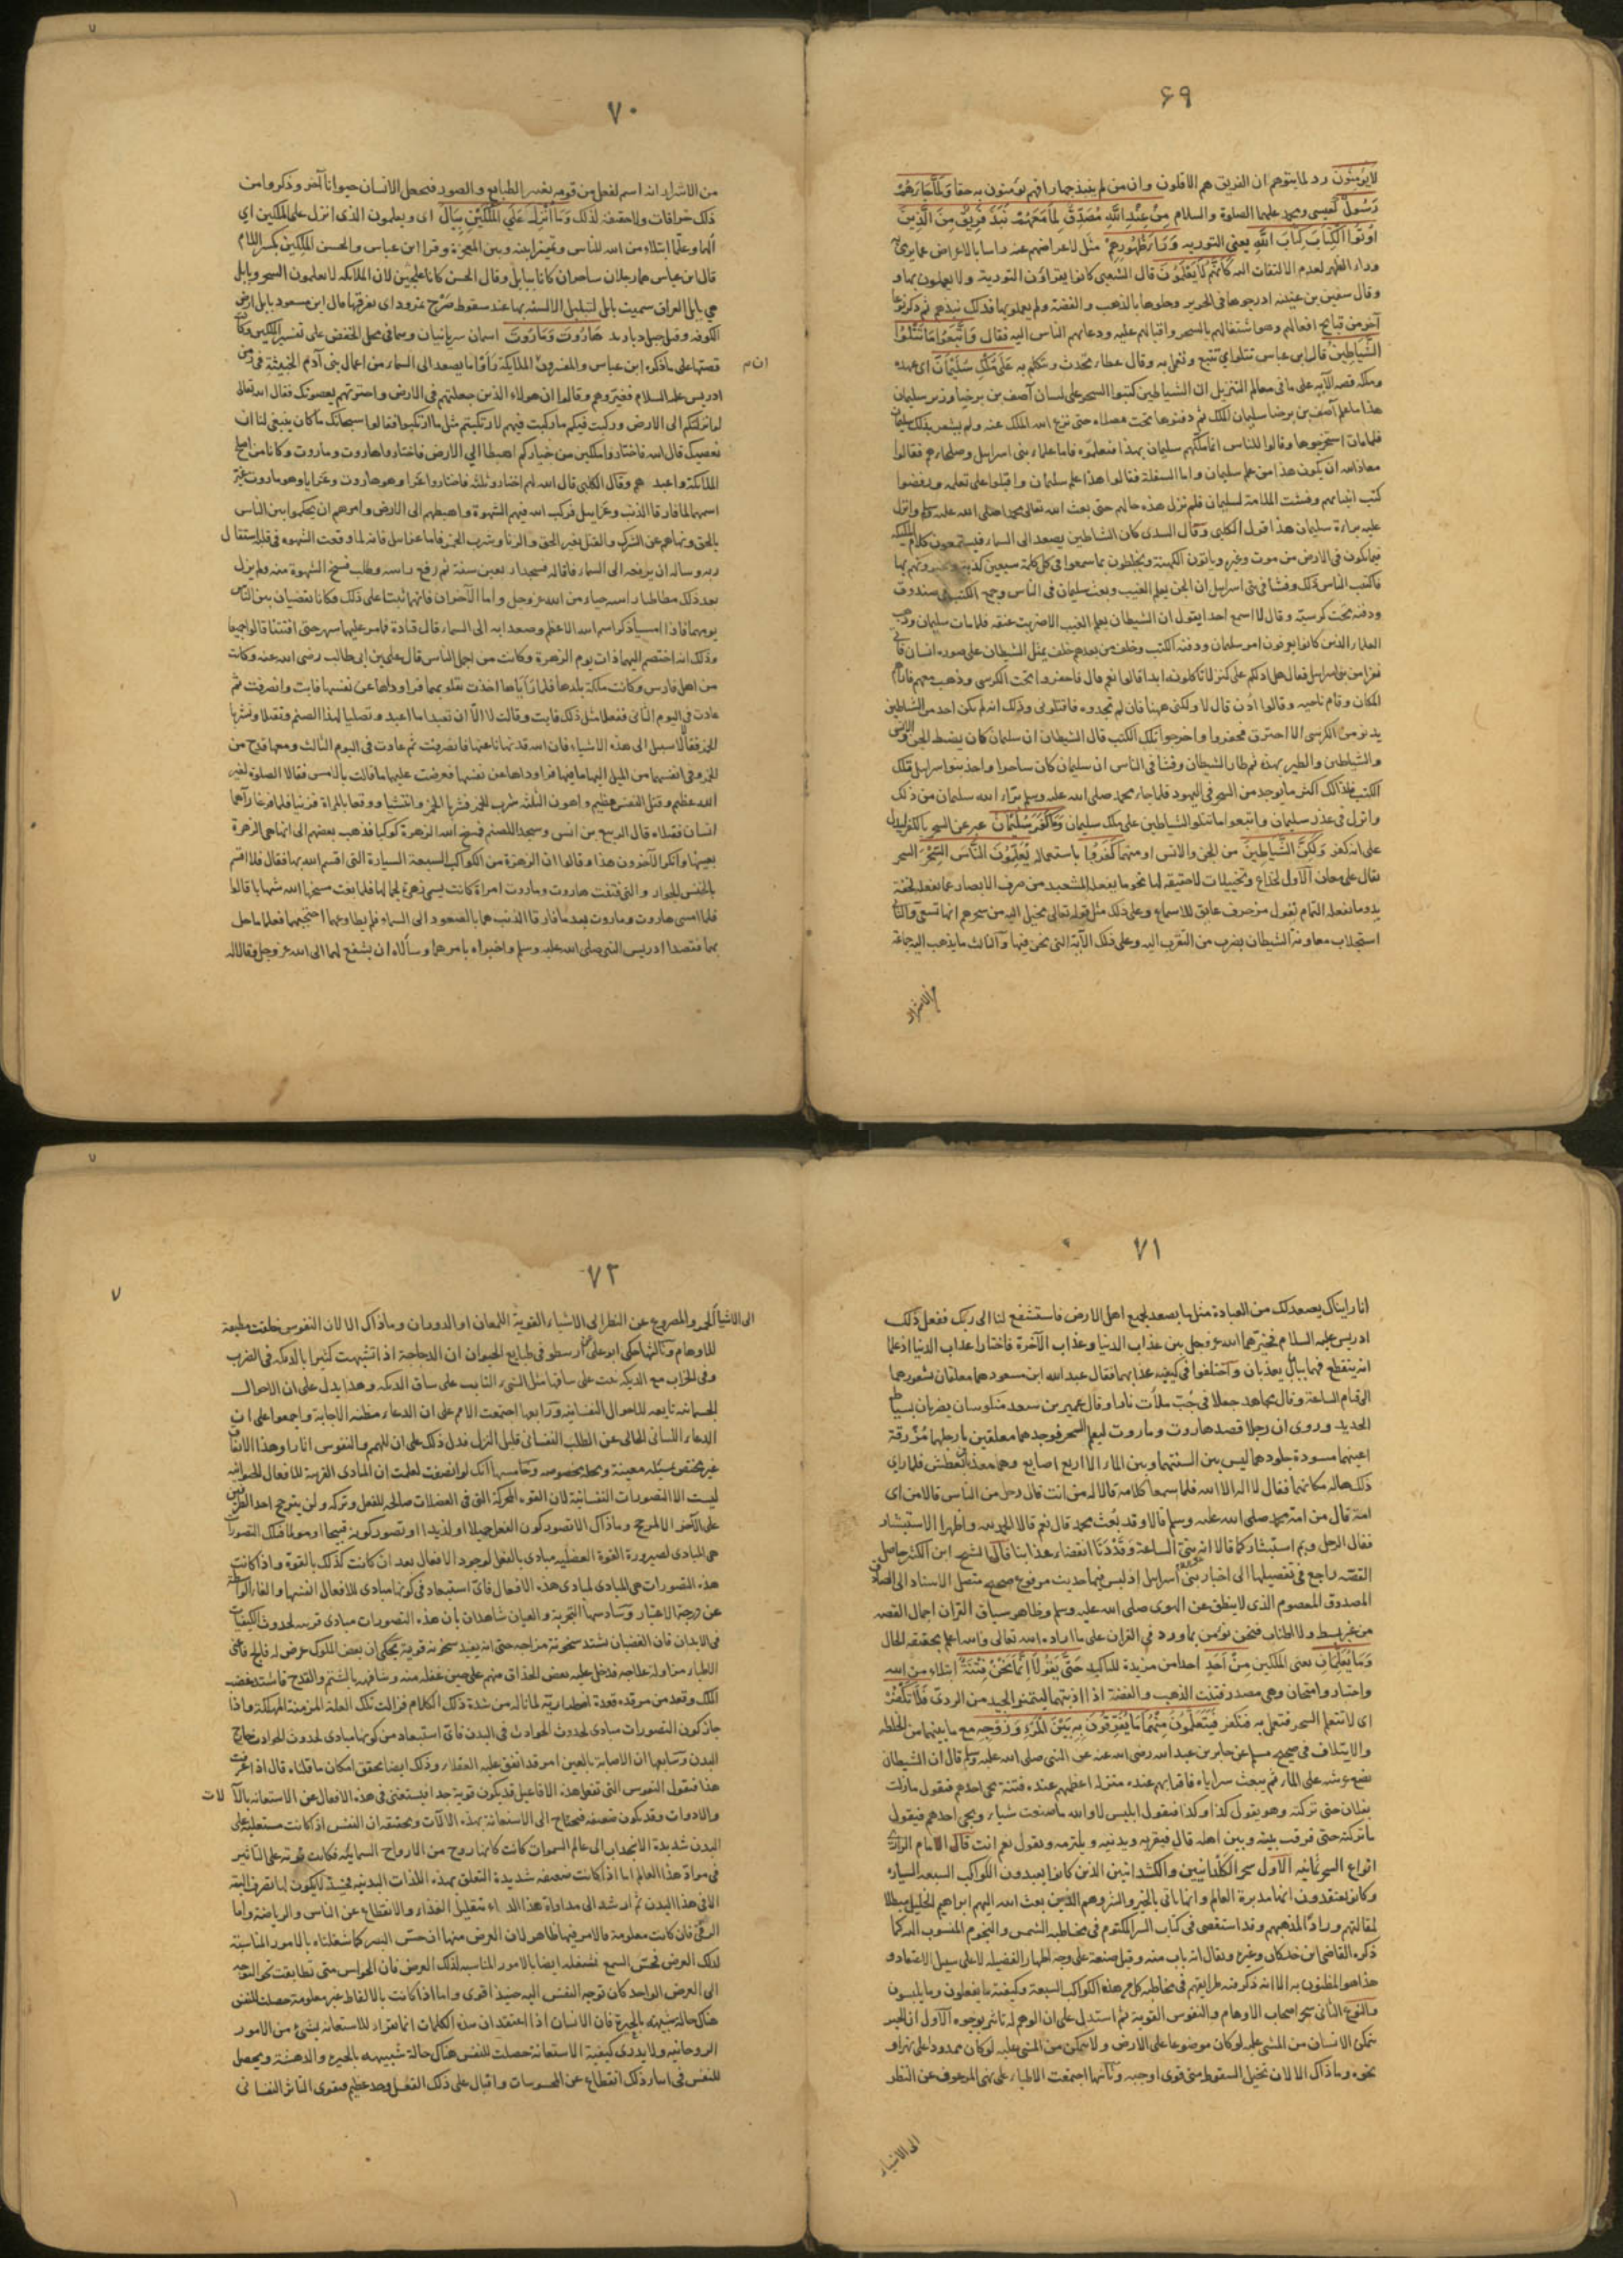 ۶۹
لا يؤمنون رد لما يتوهم ان الفريق هم الاقلون وان من لم ينبذ جهارا فهم يؤمنون به خفا ولما جاءهم
رسول كعيسى ومحمد عليهما الصلوة والسلام من عند الله مصدق لما معهم نبذ فريق من الذين
اوتوا الكتاب كتاب الله يعني التورية وراء ظهورهم مثل لاعراضهم عنه راسا بالاعراض عما يرمى
وراء الظهر لعدم الالتفات اليه كانهم لا يعلمون قال الشعبي كانوا يقراون التورية ولا يعملون بها و
وقال سفين بن عيينه ادرجوها في الحرير وحلوها بالذهب والفضة ولم يعملوا بها فذلك نبذهم ثم ذكر نوعا
آخر من قبائح افعالهم وهو اشتغالهم بالسحر واقبالهم عليه ودعائهم الناس اليه فقال واتبعوا ما تتلوا
الشياطين قال ابن عباس تتلو اي تتبع وتعمل به وقال عطاء تحدث وتتكلم به على ملك سليمان اي عهده
وملكه قصة الآية على ما في معالم التنزيل ان الشياطين كتبوا السحر على لسان آصف بن برخيا وزير سليمان
هذا ما علم آصف بن برخيا سليمان الملك ثم دفنوها تحت مصلاه حتى نزع الله الملك عنه ولم يشعر بذلك سليمان
فلما مات استخرجوها وقالوا للناس انما ملكهم سليمان بهذا فتعلموه فاما علماء بنى اسرائيل وصلحاؤهم فقالوا
معاذ الله ان يكون هذا من علم سليمان واما السفلة فقالوا هذا علم سليمان واقبلوا على تعلمه ورفضوا
كتب انبيائهم وفشت الملامة لسليمان فلم تزل هذه حالهم حتى بعث الله تعالى محمدا صلى الله عليه وسلم وانزل
عليه براءة سليمان هذا قول الكلبي وقال السدى كان الشياطين يصعد الى السماء فيستمعون كلام الملئكة
فيما يكون في الارض من موت وغيره وياتون الكهنة ويخلطون بما سمعوا في كل كلمة سبعين كذبة ويخبرونهم بها
فاكتتب الناس ذلك وفشا في بنى اسرائيل ان الجن يعلم الغيب وبعث سليمان في الناس وجمع الكتب في صندوق
ودفنه تحت كرسيه وقال لا اسمع احدا يقول ان الشيطان يعلم الغيب الا ضربت عنقه فلما مات سليمان وذهب
العلماء الذين كانوا يعرفون امر سليمان ودفنه الكتب وخلف من بعدهم خلف تمثل الشيطان على صورة انسان فاتى
نفرا من بنى اسرائيل فقال هل ادلكم على كنز لا تاكلونه ابدا قالوا نعم قال فاحفروا تحت الكرسي وذهب معهم فاراهم
المكان وقام ناحيه وقالوا ادن قال لا ولكني ههنا فان لم تجدوه فاقتلوني وذلك انه لم يكن احد من الشياطين
يدنو من الكرسى الا احترق فحفروا واخرجوا تلك الكتب قال الشيطان ان سليمان كان يضبط الجن والانس
والشياطين والطير بهذه ثم طار الشيطان وفشا في الناس ان سليمان كان ساحرا واخذ بنو اسرائيل تلك
الكتب فلذلك اكثر ما يوجد من السحر في اليهود فلما جاء محمد صلى الله عليه وسلم برّا الله سليمان من ذلك
وانزل في عذر سليمان واتبعوا ما تتلوا الشياطين على ملك سليمان وما كفر سليمان عبر عن السحر بالكفر ليدل
على انه كفر ولكن الشياطين من الجن والانس او منهما كفروا باستعماله يعلمون الناس السحر السحر
يقال على معان الاول لخداع وتخييلات لا حقيقة لها نحو ما يفعله المشعبد من صرف الابصار عما يفعله لخفة
يد وما يفعله النمام بقول مزخرف عايق للاسماع وعلى ذلك مثل قوله تعالى يخيل اليه من سحرهم انها تسعى والثاني
استجلاب معاونة الشيطان بضرب من التقرب اليه وعلى ذلك الآية التي نحن فيها والثالث ما يذهب اليه جماعة
من الاشرار
۷۰
من الاشرار انه اسم لفعل من قوته يغير الطبايع والصور فيجعل الانسان حيوانا آخر وذكروا من
ذلك خرافات ولا حقيقة لذلك وما انزل على الملكين ببابل اى ويعلمون الذى انزل على الملكين اي
ألهما وعلّما ابتلاء من الله للناس وتمييزا بينه وبين المعجزة وقرا ابن عباس والحسن الملكين بكسر اللام
قال ابن عباس هما رجلان ساحران كانا ببابل وقال الحسن كانا علجين لان الملائكة لا يعلمون السحر وبابل
هي بابل العراق سميت بابل لتبلبل الالسنة بها عند سقوط صرح نمرود اى تفرقها قال ابن مسعود بابل ارض
الكوفه وقيل جبل دباوند هاروت وماروت اسمان سريانيان وهما في محل الخفض على تفسير الملكين وكان
قصتها على ما ذكره ابن عباس والمفسرون ان الملايكة رأوا ما يصعد الى السماء من اعمال بنى آدم الخبيثة في زمن
ادريس عليه السلام فعيّروهم وقالوا ان هولاء الذين جعلتهم في الارض واخترتهم يعصونك فقال الله تعالى
لو انزلتكم الى الارض وركبت فيكم ما ركبت فيهم لارتكبتم مثل ما ارتكبوا فقالوا سبحانك ما كان ينبغي لنا ان
نعصيك قال الله فاختاروا ملكين من خياركم اهبطا الى الارض فاختاروا هاروت وماروت وكانا من اصلح
الملائكة واعبدهم وقال الكلبي قال الله لهم اختاروا ثلثة فاختاروا عزا وهو هاروت وعزايا وهو ماروت غيّر
اسمهما لما قارفا الذنب وعزاييل فركب الله فيهم الشهوة واهبطهم الى الارض وامرهم ان يحكموا بين الناس
بالحق ونهاهم عن الشرك والقتل بغير الحق والزنا وشرب الخمر فاما عزاييل فانه لما وقعت الشهوه في قلبه استقال
ربه وساله ان يرفعه الى السماء فاقاله فسجد اربعين سنة ثم رفع راسه وطلب فسخ الشهوة منه ولم يزل
بعد ذلك مطاطيا راسه حياء من الله عز وجل واما الآخران فانهما ثبتا على ذلك فكانا يقضيان بين الناس
يومهما فاذا امسيا ذكرا اسم الله الاعظم وصعدا به الى السماء قال قتادة فما مر عليهما شهر حتى افتتنا قالوا جميعا
وذلك انه اختصم اليهما ذات يوم الزهرة وكانت من اجمل الناس قال علي بن ابى طالب رضى الله عنه وكانت
من اهل فارس وكانت ملكة بلدها فلما رأياها اخذت بقلوبهما فراوداها عن نفسها فابت وانصرفت ثم
عادت في اليوم الثاني ففعلا مثل ذلك فابت وقالت لا الا ان تعبدا ما اعبد وتصليا لهذا الصنم وتقتلا وتشربا
الخمر فقالا لا سبيل الى هذه الاشياء فان الله قد نهانا عنها فانصرفت ثم عادت في اليوم الثالث ومعها قدح من
الخمر وفي انفسهما من الميل اليها ما فيها فراوداها عن نفسها فعرضت عليهما ما قالت بالامس فقالا الصلوة لغير
الله عظيم وقتل النفس عظيم واهون الثلثة شرب الخمر فشربا الخمر وانتشيا ووقعا بالمراة فزنيا فلما فرغا رآهما
انسان فقتلاه قال الربيع بن انس وسجدا للصنم فمسخ الله الزهرة كوكبا فذهب بعضهم الى انها هي الزهرة
بعينها وانكر الآخرون هذا وقالوا ان الزهرة من الكواكب السبعة السيارة التى اقسم الله بها فقال فلا اقسم
بالخنس الجوار والتي فتنت هاروت وماروت امراة كانت يسمى زهرة لجمالها فلما بغت مسخها الله شهابا قالوا
فلما امسى هاروت وماروت بعد ما قارفا الذنب هما بالصعود الى السماء فلم يطاوعهما اجنحتهما فعلما ما حل
بهما فقصدا ادريس النبي صلى الله عليه وسلم واخبراه بامرهما وسألاه ان يشفع لهما الى الله عز وجل وقالا له
۷۱
انا رايناك يصعد لك من العبادة مثل ما يصعد لجميع اهل الارض فاستشفع لنا الى ربك ففعل ذلك
ادريس عليه السلام فخيرهما الله عز وجل بين عذاب الدنيا وعذاب الآخرة فاختارا عذاب الدنيا اذ علما
انه ينقطع فهما ببابل يعذبان واختلفوا في كيفية عذابهما فقال عبد الله ابن مسعود هما معلقان بشعورهما
الى قيام الساعة وقال مجاهد جعلا في جبّ ملأت نارا وقال عمير بن سعد منكوسان يضربان بسياط
الحديد وروى ان رجلا قصد هاروت وماروت ليعلم السحر فوجدهما معلقين بارجلهما مزرقة
اعينهما مسودة جلودهما ليس بين السنتهما وبين الماء الا اربع اصابع وهما معذبان بالعطش فلما راى
ذلك هاله مكانهما فقال لا اله الا الله فلما سمعا كلامه قالا له من انت قال رجل من الناس قالا من اى
امة قال من امة محمد صلى الله عليه وسلم قالا وقد بعث محمد قال نعم قالا الحمد لله واظهرا الاستبشار
فقال الرجل وبم استبشاركما قالا انه نبي الساعة وقد دنا انقضاء عذابنا قال الشيخ ابن الكثير حاصل
القصه راجع في تفصيلها الى اخبار بنى اسرائيل اذ ليس فيها حديث مرفوع صحيح متصل الاسناد الى الصادق
المصدوق المعصوم الذى لا ينطق عن الهوى صلى الله عليه وسلم وظاهر سياق القران اجمال القصه
من غير بسط ولا اطناب فنحن نؤمن بما ورد في القران على ما اراده الله تعالى والله اعلم بحقيقة الحال
وما يعلمان يعنى الملكين من احد احدا من مزيدة للتاكيد حتى يقولا انما نحن فتنة ابتلاء من الله
واختبار وامتحان وهى مصدر فتنت الذهب والفضة اذا اذبتهما ليتميز الجيد من الردى فلا تكفر
اى لا تتعلم السحر فتعمل به فتكفر فيتعلمون منهما ما يفرقون به بين المرء وزوجه مع ما بينهما من الخلطة
والايتلاف في صحيح مسلم عن جابر بن عبد الله رضى الله عنه عن النبى صلى الله عليه وسلم قال ان الشيطان
يضع عرشه على الماء ثم يبعث سراياه فاقرابهم عنده منزلة اعظمهم عنده فتنة يجى احدهم فيقول ما زلت
بفلان حتى تركته وهو يقول كذا وكذا فيقول ابليس لا والله ما صنعت شيا ويجى احدهم فيقول
ما تركته حتى فرقت بينه وبين اهله قال فيقربه ويدنيه ويلتزمه ويقول نعم انت قال الامام الرازى
انواع السحر ثمانيه الاول سحر الكلدانيين والكشدانيين الذين كانوا يعبدون الكواكب السبعة السياره
وكانوا يعتقدون انها مدبرة العالم وانها ياتى بالخير والشر وهم الذين بعث الله اليهم ابراهيم الخليل مبطلا
لمقالتهم ورادّا لمذهبهم وقد استقصى في كتاب السر المكتوم في مخاطبة الشمس والنجوم المنسوب اليه كما
ذكره القاضى ابن خلكان وغيره ويقال انه تاب منه وقيل صنعه على وجه اظهار الفضيله لا على سبيل الاعتقاد و
هذا هو المظنون به الا انه ذكر فيه طرايقهم في مخاطبة كل من هذه الكواكب السبعة وكيفية ما يفعلون وما يلبسون
والنوع الثاني سحر اصحاب الاوهام والنفوس القوية ثم استدل على ان الوهم له تاثير بوجوه الاول ان الجسر
يتمكن الانسان من المشى عليه لو كان موضوعا على الارض ولا يمكن من المشى عليه لو كان ممدودا على نهر او
نحوه وما ذاك الا لان تخيل السقوط متى قوى اوجبه وثانيها اجتمعت الاطباء على نهى المرعوف عن النظر
الى الاشياء
۷۲
الى الاشياء الحمر والمصروع عن النظر الى الاشياء القوية اللمعان او الدوران وما ذاك الا لان النفوس خلقت مطيعة
للاوهام وثالثها حكى ابو على عن ارسطو في طبايع الحيوان ان الدجاجة اذا تشبهت كثيرا بالديكه في الضرب
وفي الحراب مع الديكه نبت على ساقها مثل الشىء النابت على ساق الديكه وهذا يدل على ان الاحوال
الجسمانيه تابعه للاحوال النفسانيه ورابعها اجتمعت الامم على ان الدعاء مظنة الاجابة واجمعوا على ان
الدعاء اللسانى الخالى عن الطلب النفسانى قليل النزل فدل ذلك على ان للهمم والنفوس اثارا وهذا الاتفاق
غير مختص بمسئله معينة وبحله مخصوصه وخامسها انك لو انصفت لعلمت ان المبادى القريبة للافعال الحيوانيه
ليست الا التصورات النفسانية لان القوه المحركة التى في العضلات صالحة للفعل وتركه ولن يترجح احد الطرفين
على الآخر الا لمرجح وما ذاك الا تصور كون الفعل جميلا او لذيذا او تصور كونه قبيحا او مولما فتلك التصورات
هى المبادى لصيرورة القوة العضلية مبادى بالفعل لوجود الافعال بعد ان كانت كذلك بالقوة واذا كانت
هذه التصورات هى المبادى لمبادى هذه الافعال فاى استبعاد في كونها مبادى للافعال انفسها والغاء الواسطة
عن درجة الاعتبار وسادسها التجربة والعيان شاهدان بان هذه التصورات مبادى قريبه لحدوث الكيفيات
في الابدان فان الغضبان يشتد سخونة مزاجه حتى انه يفيد سخونه قوية يحكى ان بعض الملوك عرض له فالج فاعيى
الاطباء مزاولة علاجه فدخل عليه بعض الحذاق منهم على حين غفلة منه وشافهه بالشتم والقدح فاشتد غضب
الملك وقعد من مرقده قعدة اضطرارية لما ناله من شدة ذلك الكلام فزالت تلك العلة المزمنة المهلكة واذا
جاز كون التصورات مبادى لحدوث الحوادث في البدن فاى استبعاد من كونها مبادى لحدوث الحوادث خارج
البدن وسابعها ان الاصابة بالعين امر قد اتفق عليه العقلاء وذلك ايضا يحقق امكان ما قلناه قال اذا عرفت
هذا فنقول النفوس التى تفعل هذه الافاعيل قد يكون قوية جدا فيستغنى في هذه الافعال عن الاستعانه بالآلات
والادوات وقد يكون ضعيفه فيحتاج الى الاستعانة بهذه الآلات وتحقيقه ان النفس اذ كانت مستعليه على
البدن شديدة الانجذاب الى عالم السموات كانت كانها روح من الارواح السمائيه فكانت قوية على التاثير
في مواد هذا العالم اما اذا كانت ضعيفه شديدة التعلق بهذه اللذات البدنيه فحينئذ لا يكون لها تصرف البته
الا في هذا البدن ثم ارشد الى مداواة هذا الداء بتقليل الغذاء والانقطاع عن الناس والرياضة واما
الرقى فان كانت معلومة فالامر فيها ظاهر لان الغرض منها ان حس البصر كما شغلناه بالامور المناسبة
لذلك الغرض فحس السمع نشغله ايضا بالامور المناسبه لذلك الغرض فان الحواس متى تطابقت نحو التوجه
الى الغرض الواحد كان توجه النفس اليه حينئذ اقوى واما اذا كانت بالالفاظ غير معلومة حصلت للنفس
هناك حالة شبيهة بالحيرة فان الانسان اذا اعتقد ان هذه الكلمات انما تقرا للاستعانه بشئ من الامور
الروحانيه ولا يدرى كيفية الاستعانة حصلت للنفس هناك حالة شبيهه بالحيره والدهشة ويحصل
للنفس في اثناء ذلك انقطاع عن المحسوسات واقبال على ذلك الفعل وجد عظيم فيقوى التاثر النفسانى